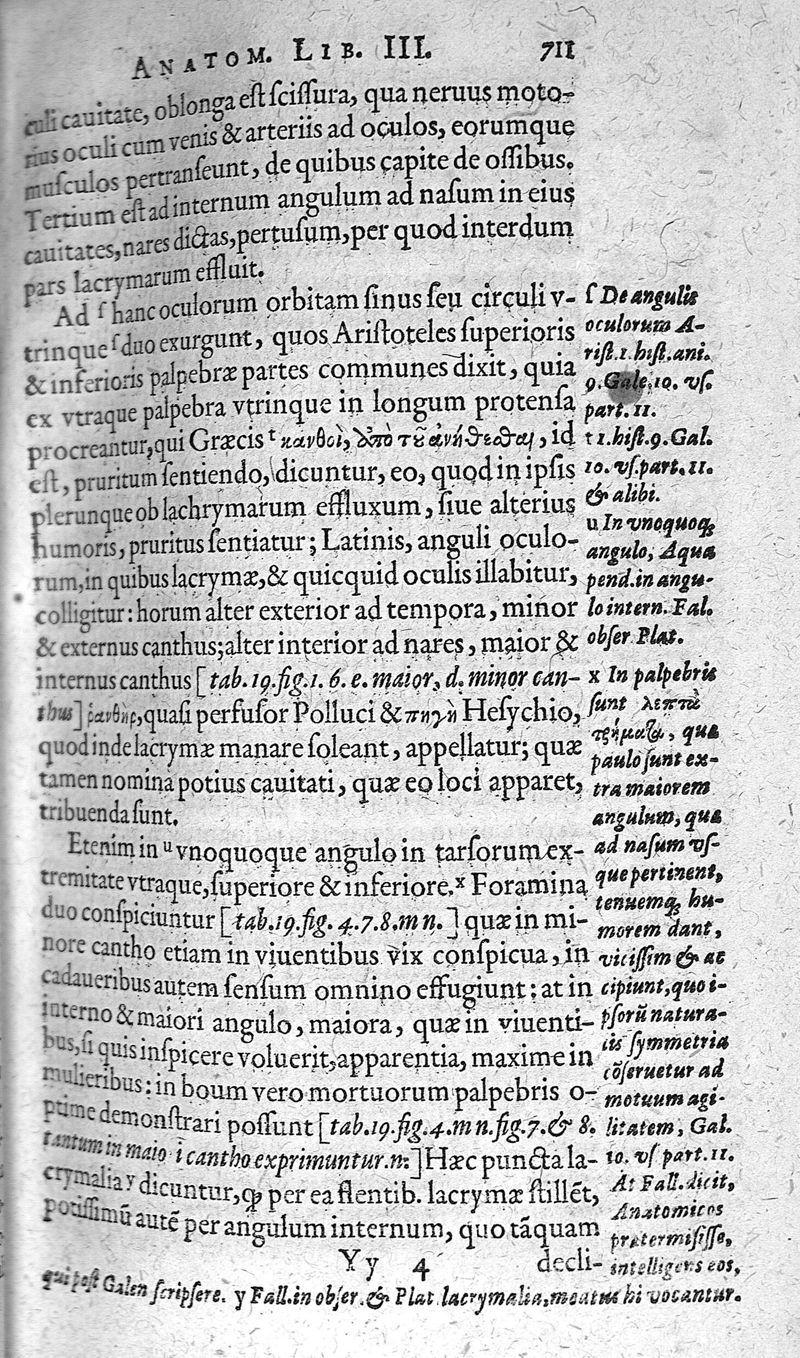 ANATOM. LIB. III. 711
culi cauitate, oblonga est scissura, qua neruus moto-
rius oculi cum venis & arteriis ad oculos, eorumque
musculos pertranseunt, de quibus capite de ossibus.
Tertium est ad internum angulum ad nasum in eius
cauitates, nares dictas, pertusum, per quod interdum
pars lacrymarum effluit.
Ad ſ hanc oculorum orbitam sinus seu circuli v-
trinque ſ duo exurgunt, quos Aristoteles superioris
& inferioris palpebræ partes communes dixit, quia
ex vtraque palpebra vtrinque in longum protensa
procreantur, qui Græcis t κανθοὶ, ἀπὸ τοῦ ἀνήθεσθαι, id
est, pruritum sentiendo, dicuntur, eo, quod in ipsis
plerunque ob lachrymarum effluxum, siue alterius
humoris, pruritus sentiatur; Latinis, anguli oculo-
rum, in quibus lacrymæ, & quicquid oculis illabitur,
colligitur: horum alter exterior ad tempora, minor
& externus canthus; alter interior ad nares, maior &
internus canthus [tab. 19. fig. 1. 6. e. maior, d. minor can-
thus] ῥανθὴρ, quasi perfusor Polluci & πηγὴ Hesychio,
quod inde lacrymæ manare soleant, appellatur; quæ
tamen nomina potius cauitati, quæ eo loci apparet,
tribuenda sunt.
Etenim in u vnoquoque angulo in tarsorum ex-
tremitate vtraque, superiore & inferiore, x Foramina
duo conspiciuntur [tab. 19. fig. 4. 7. 8. m n.] quæ in mi-
nore cantho etiam in viuentibus vix conspicua, in
cadaueribus autem sensum omnino effugiunt: at in
interno & maiori angulo, maiora, quæ in viuenti-
bus, si quis inspicere voluerit, apparentia, maxime in
mulieribus: in boum vero mortuorum palpebris o-
ptime demonstrari possunt [tab. 19. fig. 4. m n. fig. 7. & 8.
tantum in maiori cantho exprimuntur. n.] Hæc puncta la-
crymalia y dicuntur, q̨ per ea flentib. lacrymæ stillēt,
potissimū autē per angulum internum, quo tāquam
Yy 4 decli-
ſ De angulis
oculorum A-
rist. 1. hist. ani.
9. Gale. 10. vs.
part. 11.
t 1. hist. 9. Gal.
10. vs. part. 11.
& alibi.
u In vnoquoq̨
angulo, Aqua
pend. in angu-
lo intern. Fal.
obser Plat.
x In palpebris
sunt λεπτὰ
τρήματα, quæ
paulo sunt ex-
tra maiorem
angulum, quæ
ad nasum vs-
que pertinent,
tenuemq̨ hu-
morem dant,
vicissim & ac
cipiunt, quo i-
psorū natura-
lis symmetria
cōseruetur ad
motuum agi-
litatem, Gal.
10. vs part. 11.
At Fall. dicit,
Anatomicos
prætermisisse,
intelligens eos,
qui post Galen scripsere. y Fall. in obser. & Plat lacrymalia, meatus hi vocantur.